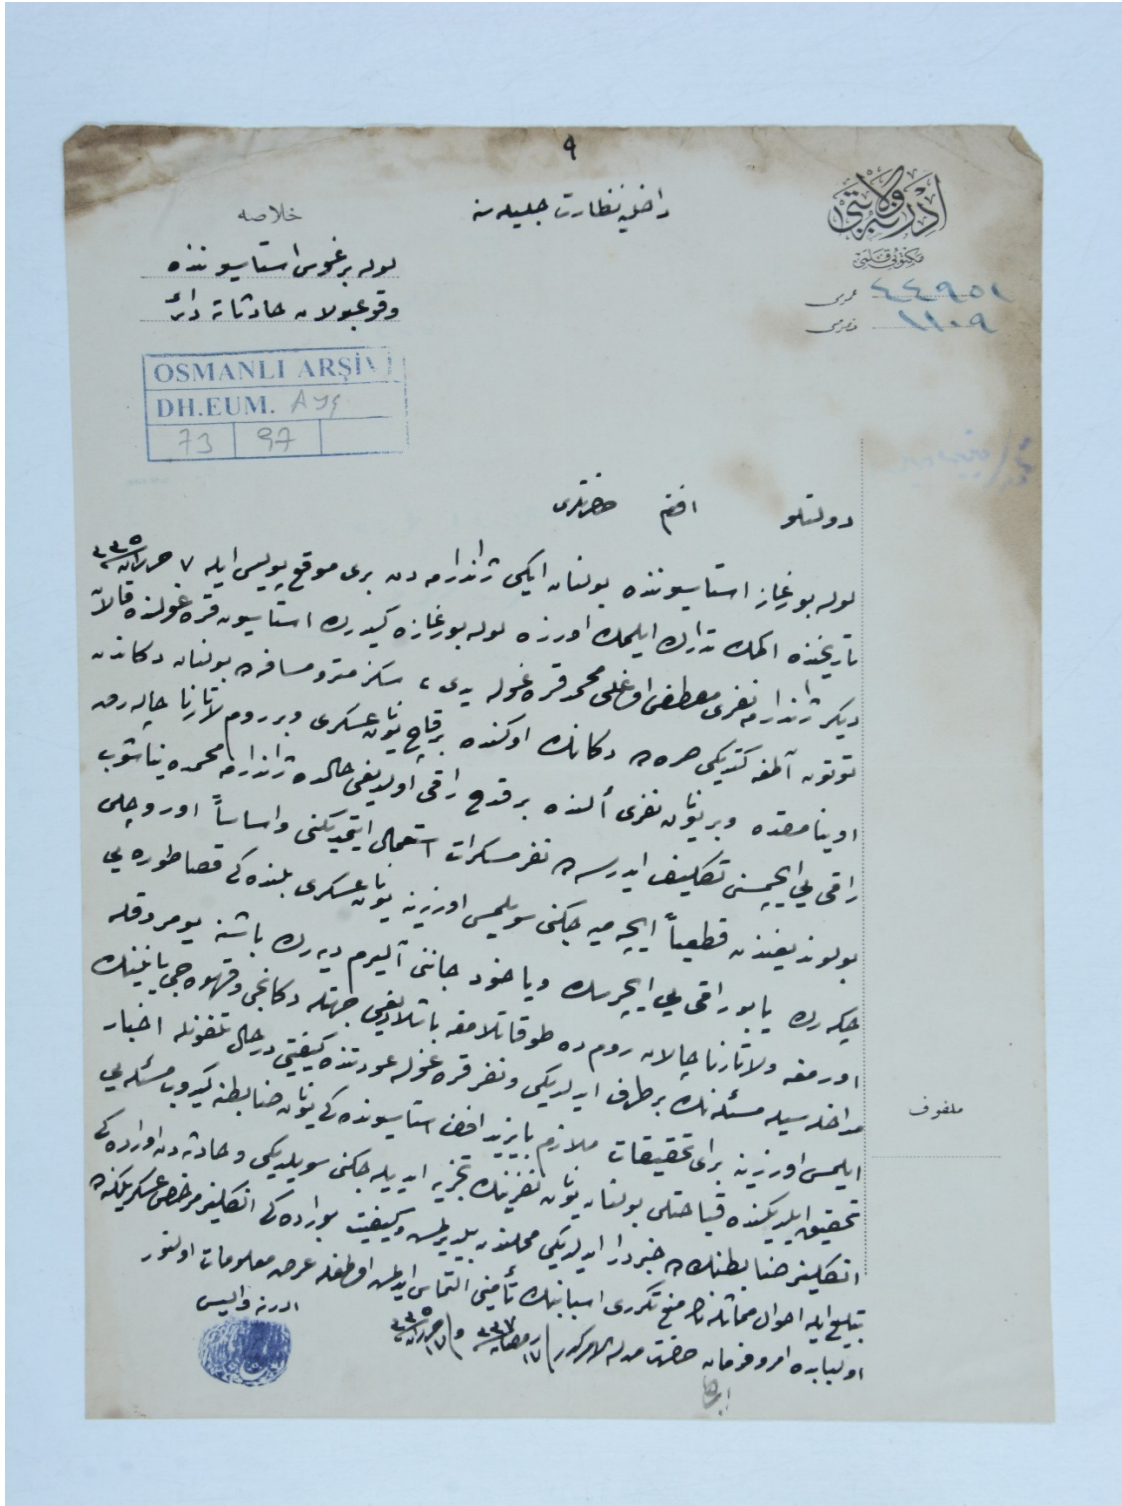 ٩
ادرنه ولايتى
مكتوبى قلمى
داخليه نظارت جليله سنه
خلاصه
لوله برغوس استاسيوننده
وقوعبولان حادثاته دائر
عمومى ٤٤٩٥١
خصوصى ١١٠٩
OSMANLI ARŞİVİ
DH.EUM. AYŞ
73 97
دولتلو افندم حضرتلرى
لوله بورغاز استاسيوننده بولنان ايكى ژاندارمه دن برى موقع پوليسى ايله ٧ حزيران ٣٣٥
تاريخنده اكمك تدارك ايلمك اوزره لوله بورغازه كيدرك استاسيون قره غولنده قالان
ديكر ژاندارمه نفرى مصطفى اوغلى محمد قره غوله يدى، سكز مترو مسافه ده بولنان دكاندن
توتون آلمغه كتديكى صره ده دكانك اوكنده برقاچ يونان عسكرى وبر روم لاتارنا چاله رق
اوينامقده وبر يونان نفرى ألنده بر قدح راقى اولديغى حالده ژاندارمه محمده ياناشوب
راقى يى ايچمسنى تكليف ايدرسه ده نفر مسكرات استعمال ايتمديكنى واساساً اوروجلى
بولونديغندن قطعياً ايچه ميه جكنى سويلمسى اوزرينه يونان عسكرى بلنده كى قصاطوره يى
چكه رك يا بو راقى يى ايچرسك وياخود جاننى آليرم ديه رك باشنه يومروقله
اورمغه ولاتارنا چالان روم ده طوقاتلامغه باشلاديغى جهتله دكانجى وقهوه جى يانينك
مداخله سيله مسئله نك برطرف ايدلديكى ونفر قره غوله عودتنده كيفيتى درحال تلفونله اخبار
ايلمسى اوزرينه براى تحقيقات ملازم بايزيد افندى استاسيونده كى يونان ضابطنه كيدوب مسئله يى
تحقيق ايلديكنده قباحتلى بولنان يونان نفرينك تجزيه ايديله جكنى سويلديكى وحادثه دن اوراده كى
انكليز ضابطنك ده خبردار ايدلديكى محلندن بيلديرلمش وكيفيت بوراده كى انكليز مرخص عسكريلكنه ده
تبليغ ايله احوال مماثله نك منع تكررى اسبابنك تأمينى التماس ايدلمش اولمغله عرض معلومات اولنور
اولبابده امر وفرمان حضرت من له الامركدر ١٧ رمضان ٣٣٧ و ١٧ حزيران ٣٣٥
ادرنه واليسى
ملفوف